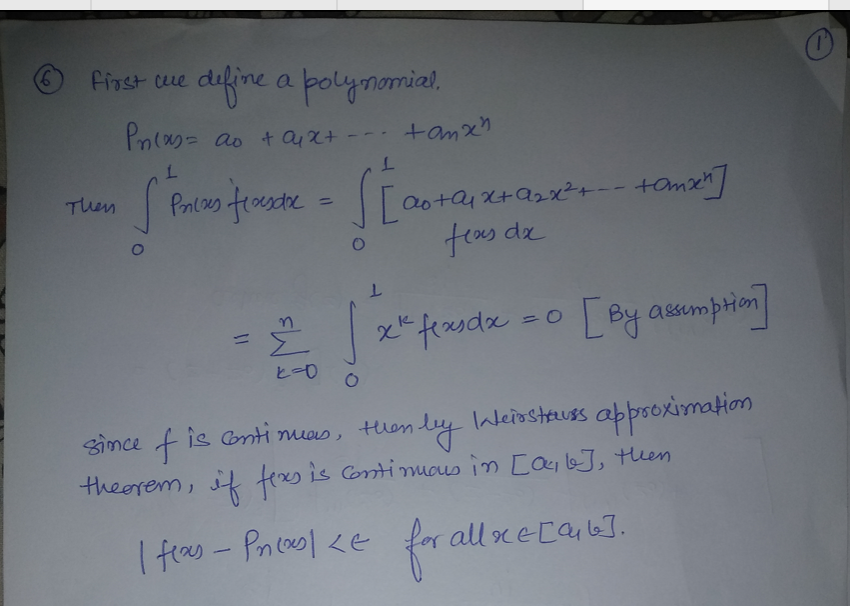 ①
⑥ First we define a polynomial.
Pn(x) = a0 + a1x + --- + anx^n
Then ∫_0^1 Pn(x) f(x)dx = ∫_0^1 [a0+a1x+a2x^2+--- +anx^n]
f(x) dx
= Σ_{k=0}^{n} ∫_0^1 x^k f(x)dx = 0 [By assumption]
since f is continuous, then by Weirstrauss approximation
theorem, if f(x) is continuous in [a,b], then
|f(x) - Pn(x)| < ε for all x ∈ [a,b].